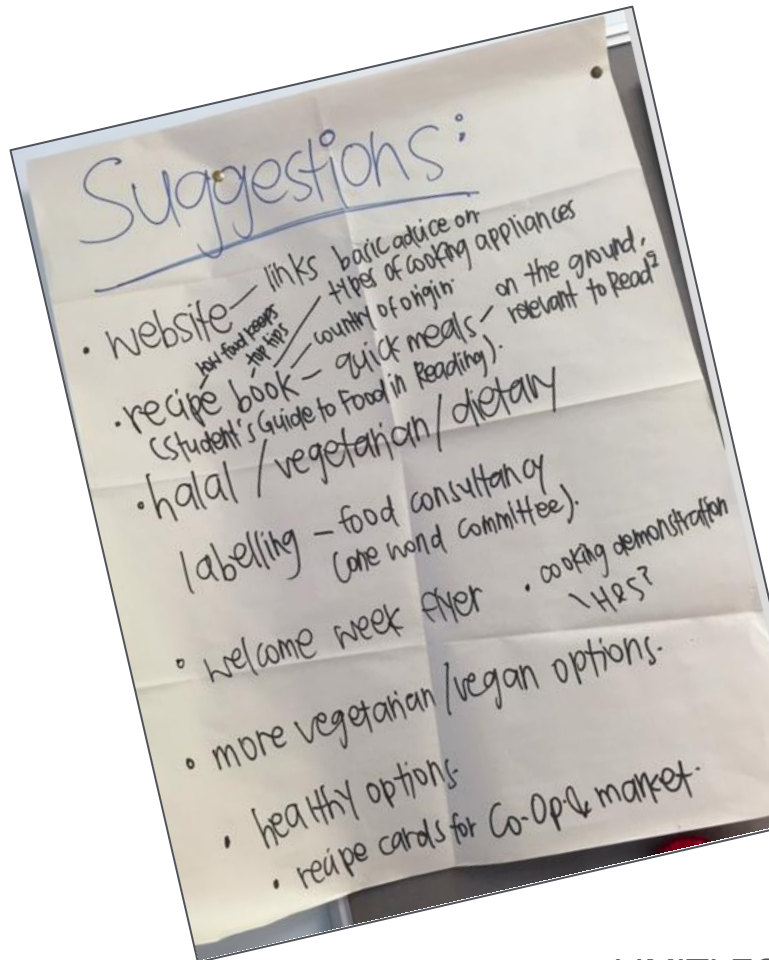 Suggestions:
• website — links
basic advice on
types of cooking appliances
how food keeps
- top tips
country of origin
• recipe book — quick meals — on the ground,
relevant to Read
(Student's Guide to Food in Reading).
• halal / vegetarian / dietary
labelling — food consultancy
(one world committee).
• welcome week flyer
• cooking demonstration
\
• more vegetarian / vegan options.
• healthy options.
• recipe cards for Co-Op & market.